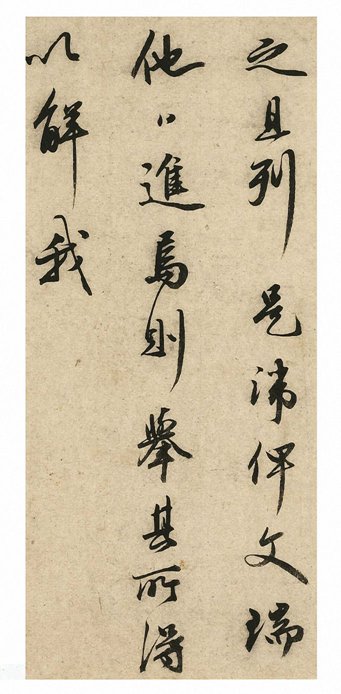 之且列是諱俾文瑞
他日進焉則舉其所得
以解我